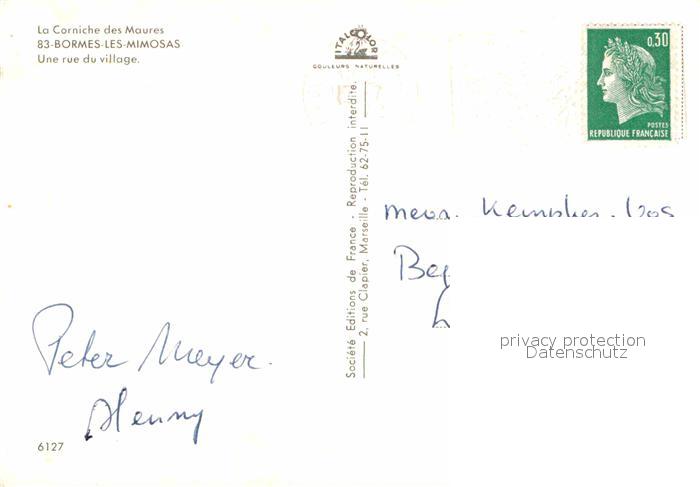 La Corniche des Maures
83-BORMES-LES-MIMOSAS
Une rue du village.
ITALCOLOR
COULEURS NATURELLES
0,30
POSTES
REPUBLIQUE FRANÇAISE
Société Editions de France - Reproduction interdite.
2, rue Clapier, Marseille - Tél. 62-75-11
privacy protection
Datenschutz
Peter Meyer.
Henny
6127